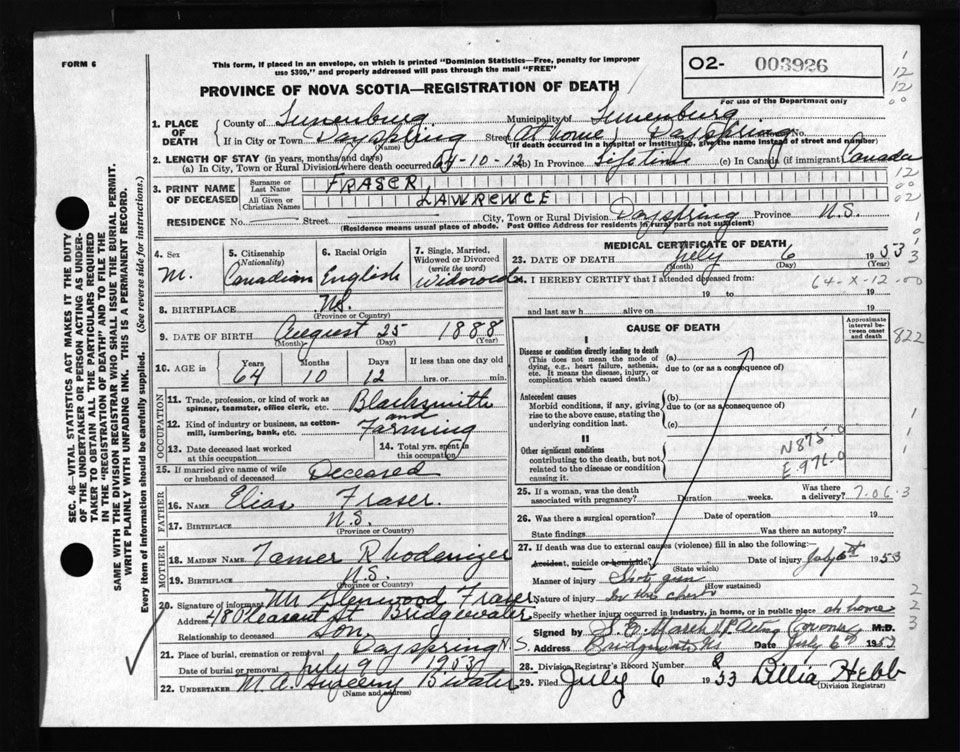 FORM 6
This form, if placed in an envelope, on which is printed "Dominion Statistics—Free, penalty for improper
use $300," and properly addressed will pass through the mail "FREE"
PROVINCE OF NOVA SCOTIA—REGISTRATION OF DEATH
O2- 003926
For use of the Department only
1. PLACE OF DEATH
County of Lunenburg Municipality of Lunenburg
If in City or Town Dayspring Street At home Dayspring No.
(Name) (If death occurred in a hospital or institution, give the name instead of street and number)
2. LENGTH OF STAY (in years, months and days)
(a) In City, Town or Rural Division where death occurred 64-10-12 (b) In Province Life time (c) In Canada (if immigrant) Canada
3. PRINT NAME OF DECEASED
Surname or Last Name FRASER,
All Given or Christian Names LAWRENCE
RESIDENCE No. Street City, Town or Rural Division Dayspring Province N.S.
(Residence means usual place of abode. Post Office Address for residents in rural parts not sufficient)
4. Sex
M.
5. Citizenship
(Nationality)
Canadian
6. Racial Origin
English
7. Single, Married, Widowed or Divorced
(write the word)
Widowed
8. BIRTHPLACE N.S.
(Province or Country)
9. DATE OF BIRTH August 25 1888
(Month) (Day) (Year)
10. AGE in Years Months Days If less than one day old
64 10 12 hrs. or min.
OCCUPATION
11. Trade, profession, or kind of work as
spinner, teamster, office clerk, etc. Blacksmith
and
12. Kind of industry or business, as cotton-
mill, lumbering, bank, etc. Farming
13. Date deceased last worked
at this occupation
14. Total yrs. spent
in this occupation
25. If married give name of wife
or husband of deceased Deceased
FATHER
16. NAME Elias Fraser.
17. BIRTHPLACE N.S.
(Province or Country)
MOTHER
18. MAIDEN NAME Tamer Rhodenizer
19. BIRTHPLACE N.S.
(Province or Country)
20. Signature of informant Mr Glenwood Fraser
Address 48 Pleasant St Bridgewater
Relationship to deceased Son
21. Place of burial, cremation or removal Dayspring N.S.
Date of burial or removal July 9 1953
22. UNDERTAKER M. A. B'Water
(Name and address)
MEDICAL CERTIFICATE OF DEATH
23. DATE OF DEATH July 6 1953
(Month) (Day) (Year)
24. I HEREBY CERTIFY that I attended deceased from:
64-X-12-00
19 to 19
and last saw h alive on 19
CAUSE OF DEATH
Approximate interval between onset and death
I
Disease or condition directly leading to death
(This does not mean the mode of
dying, e.g., heart failure, asthenia,
etc. It means the disease, injury, or
complication which caused death.)
(a)
due to (or as a consequence of)
Antecedent causes
Morbid conditions, if any, giving
rise to the above cause, stating the
underlying condition last.
(b)
due to (or as a consequence of)
(c)
II
Other significant conditions
contributing to the death, but not
related to the disease or condition
causing it.
N875.0
E976.0
25. If a woman, was the death
associated with pregnancy? Duration weeks. Was there
a delivery? 7-06-3
26. Was there a surgical operation? Date of operation 19
State findings Was there an autopsy?
27. If death was due to external causes (violence) fill in also the following:
Accident, suicide or homicide? Date of injury July 6th 1953
(State which)
Manner of injury Shot gun
(How sustained)
Nature of injury In the chest
Specify whether injury occurred in industry, in home, or in public place at home
Signed by S. E. March J.P. Acting Coroner M.D.
Address Bridgewater NS Date July 6th 1953
28. Division Registrar's Record Number 8
29. Filed July 6 1953 Lillia Hebb
(Division Registrar)
SEC. 46—VITAL STATISTICS ACT MAKES IT THE DUTY
OF THE UNDERTAKER OR PERSON ACTING AS UNDER-
TAKER TO OBTAIN ALL THE PARTICULARS REQUIRED
IN THE "REGISTRATION OF DEATH" AND TO FILE THE
SAME WITH THE DIVISION REGISTRAR WHO SHALL ISSUE THE BURIAL PERMIT.
WRITE PLAINLY WITH UNFADING INK. THIS IS A PERMANENT RECORD.
Every item of information should be carefully supplied. (See reverse side for instructions.)
1
12
12
00
12
00
02
1
0
3
822
1
1
1
2
2
3